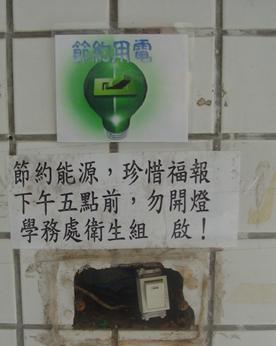 節約用電
節約能源，珍惜福報
下午五點前，勿開燈
學務處衛生組　啟！